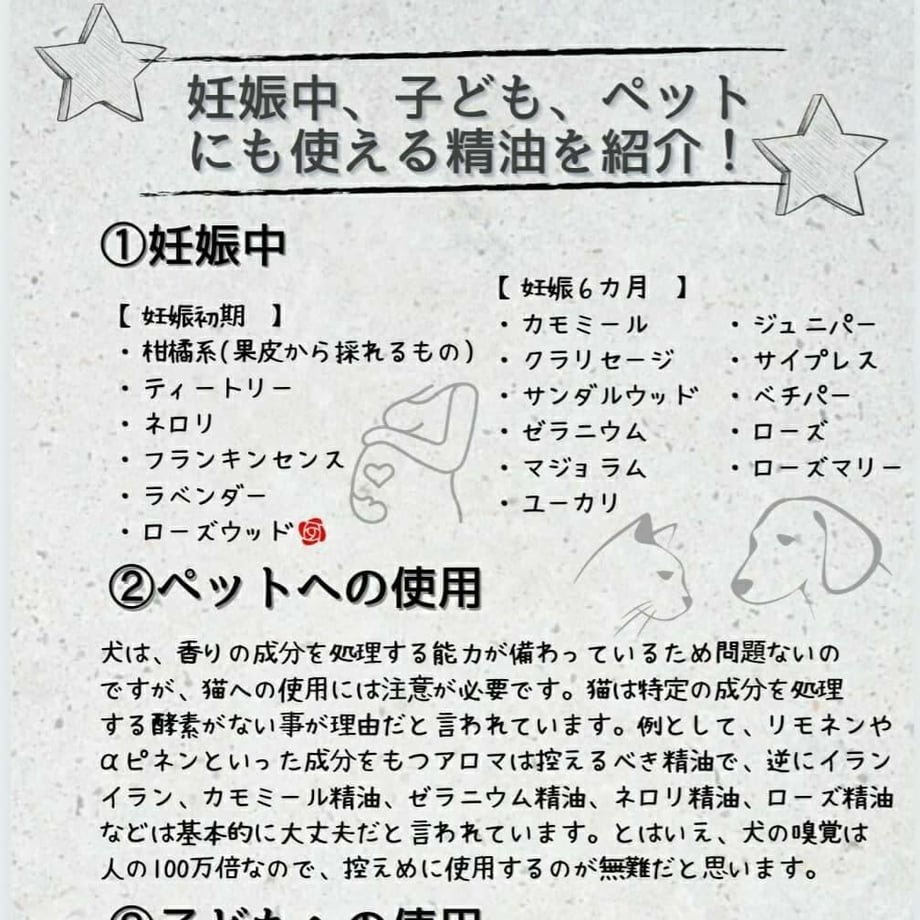 妊娠中、子ども、ペット
にも使える精油を紹介！
①妊娠中
【 妊娠初期 】
・柑橘系(果皮から採れるもの)
・ティートリー
・ネロリ
・フランキンセンス
・ラベンダー
・ローズウッド
【 妊娠6カ月 】
・カモミール
・クラリセージ
・サンダルウッド
・ゼラニウム
・マジョラム
・ユーカリ
・ジュニパー
・サイプレス
・ベチパー
・ローズ
・ローズマリー
②ペットへの使用
犬は、香りの成分を処理する能力が備わっているため問題ないの
ですが、猫への使用には注意が必要です。猫は特定の成分を処理
する酵素がない事が理由だと言われています。例として、リモネンや
αピネンといった成分をもつアロマは控えるべき精油で、逆にイラン
イラン、カモミール精油、ゼラニウム精油、ネロリ精油、ローズ精油
などは基本的に大丈夫だと言われています。とはいえ、犬の嗅覚は
人の100万倍なので、控えめに使用するのが無難だと思います。
③子どもへの使用